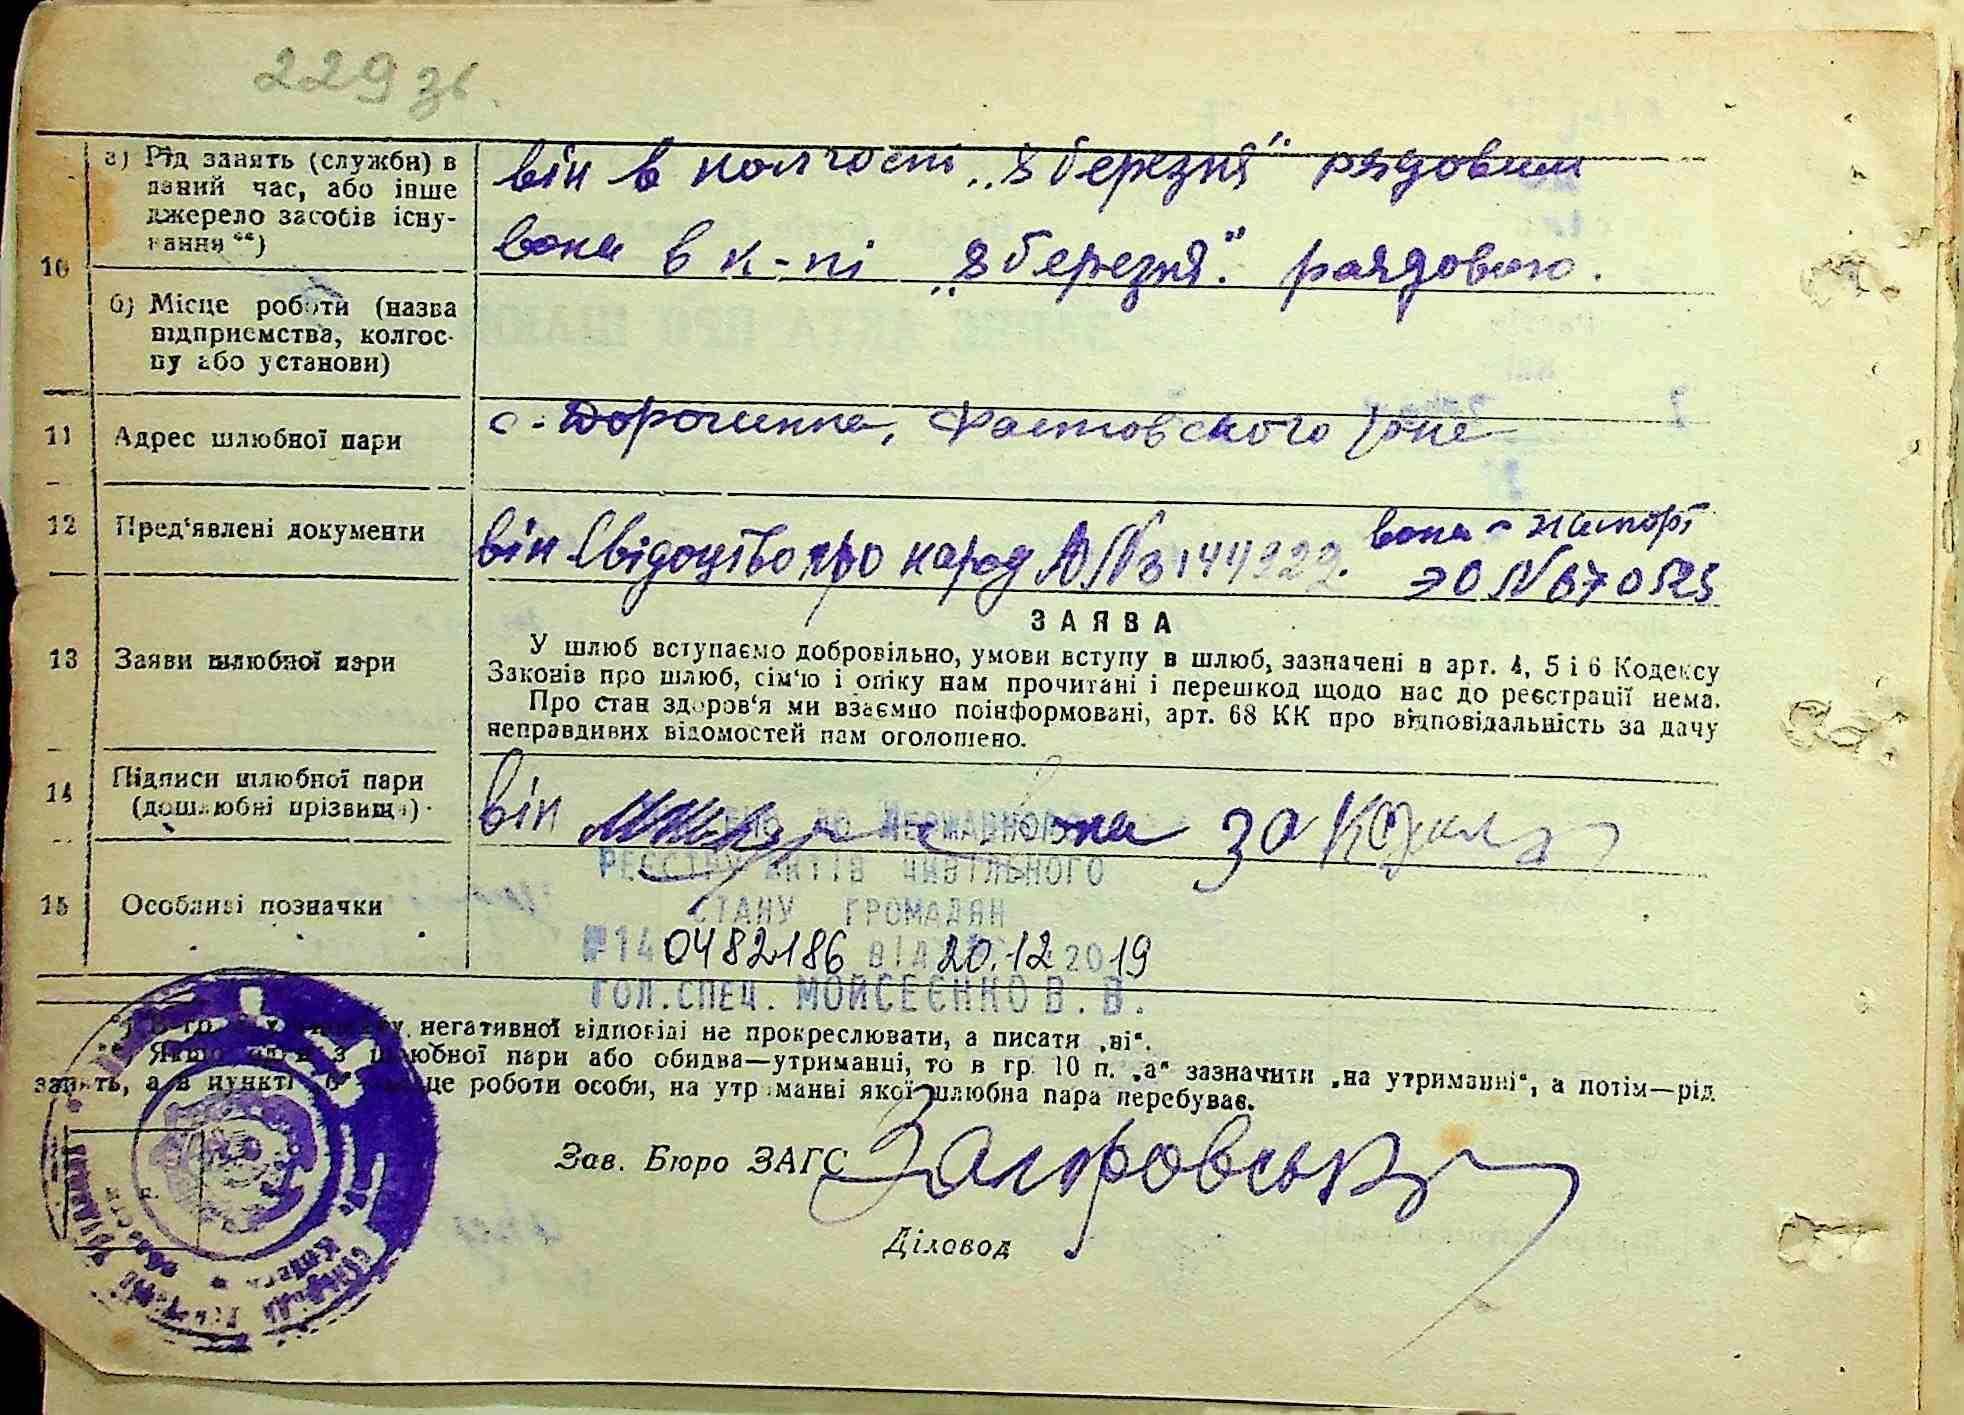 229 зв.
10
а) Рід занять (служби) в
даний час, або інше
джерело засобів існу-
вання **)
він в колгоспі „8 березня" рядовим
вона в к-пі „8 березня". рядовою.
б) Місце роботи (назва
підприємства, колгос-
пу або установи)
11
Адрес шлюбної пари
с. Дорогинка, Фастовского
12
Пред'явлені документи
він Свідоцтво про народ № 3144922. вона - паспорт
ЭО № 670525
13
Заяви шлюбної пари
ЗАЯВА
У шлюб вступаємо добровільно, умови вступу в шлюб, зазначені в арт. 4, 5 і 6 Кодексу
Законів про шлюб, сім'ю і опіку нам прочитані і перешкод щодо нас до реєстрації нема.
Про стан здоров'я ми взаємно поінформовані, арт. 68 КК про відповідальність за дачу
неправдивих відомостей нам оголошено.
14
Підписи шлюбної пари
(дошлюбні прізвища)
він вона
ДО ДЕРЖАВНОГО
РЕЄСТРУ АКТІВ ЦИВІЛЬНОГО
15
Особливі позначки
СТАНУ ГРОМАДЯН
№ 140482186 від 20.12.2019
ГОЛ.СПЕЦ. МОЙСЕЄНКО В.В.
негативної відповіді не прокреслювати, а писати „ні".
з шлюбної пари або обидва—утриманці, то в гр. 10 п. „а" зазначити „на утриманні", а потім—рід
занять, а в пункті „б" місце роботи особи, на утриманні якої шлюбна пара перебуває.
Зав. Бюро ЗАГС
Діловод